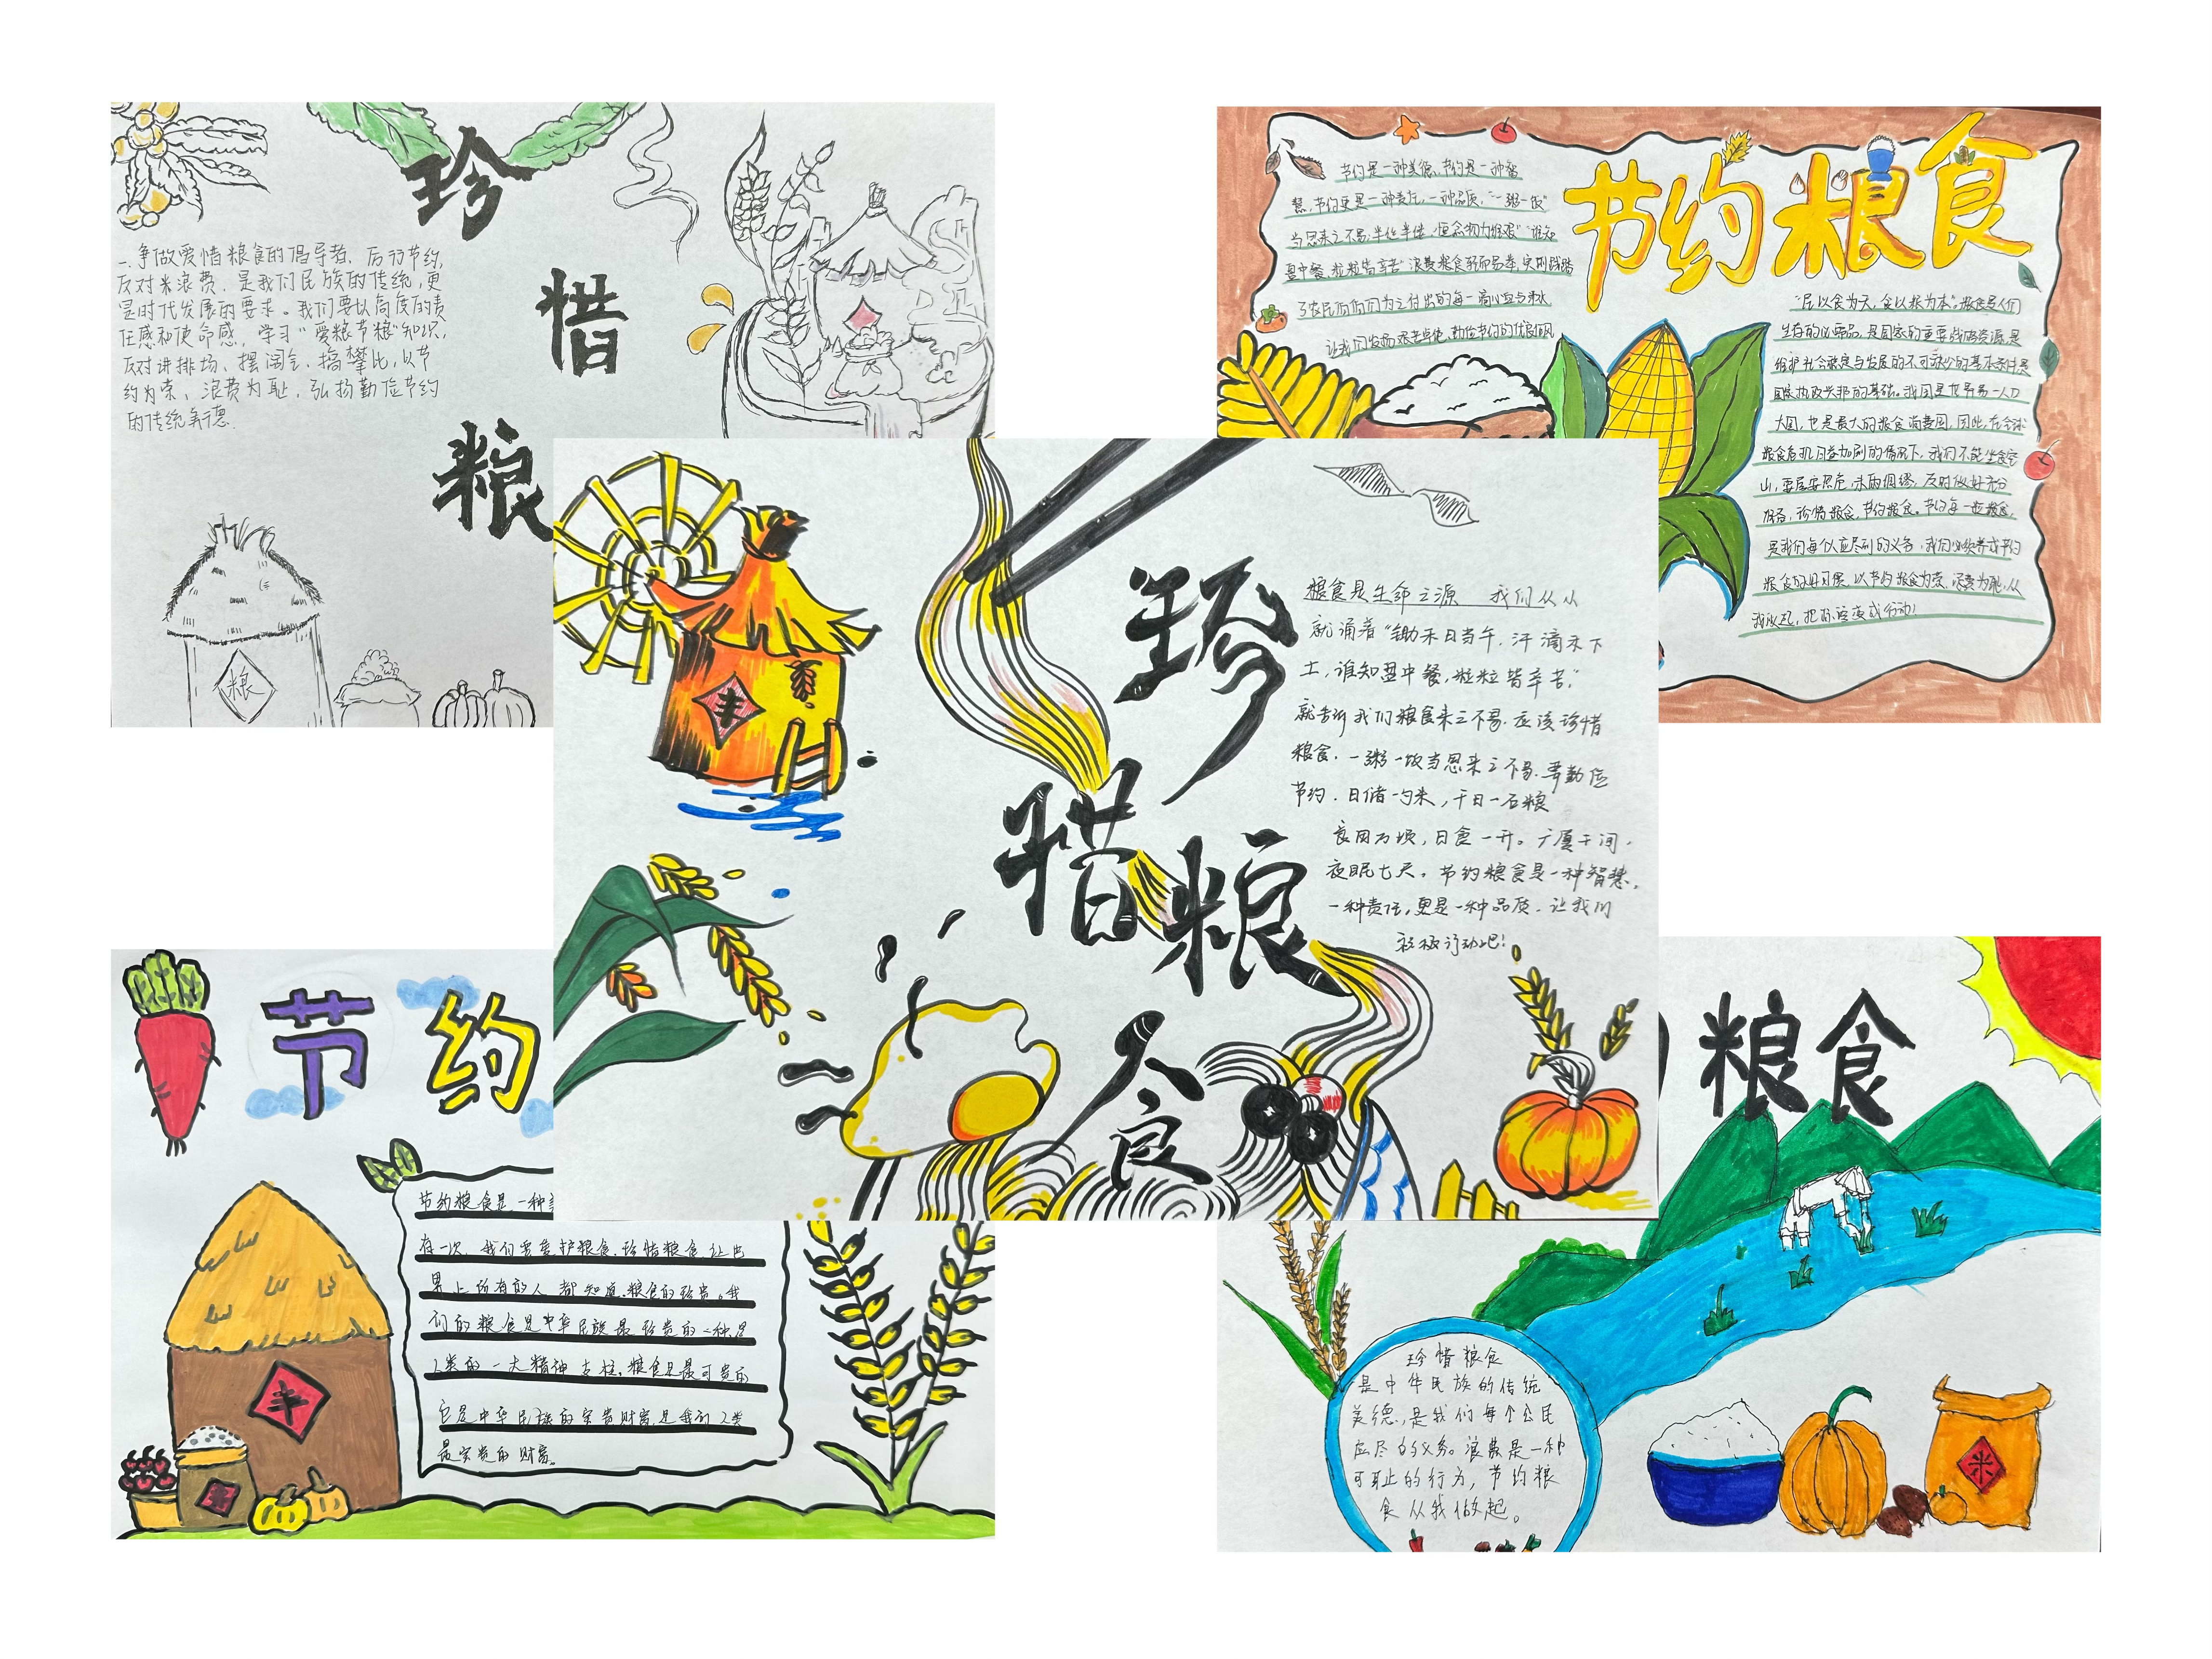 珍
惜
粮
一.争做爱惜粮食的倡导者. 厉行节约,
反对米浪费. 是我们民族的传统,更
是时代发展的要求。我们要以高度的责
任感和使命感, 学习"爱粮节粮"知识,
反对讲排场、摆阔气、搞攀比,以节
约为荣、浪费为耻,弘扬勤俭节约
的传统美德.
粮
节约粮食
节约是一种美德,节约是一种智
慧,节约更是一种责任,一种品质,"一粥一饭"
当思来之不易,半丝半缕,恒念物力维艰""谁知
盘中餐,粒粒皆辛苦"浪费粮食轻而易举,实则践踏
了农民伯伯们为之付出的每一滴心血与汗水
让我们发扬艰苦卓绝,勤俭节约的优良作风
"民以食为天,食以粮为本",粮食是人们
生存的必需品,是国家的重要战略资源,是
维护社会稳定与发展的不可缺少的基本条件,是
国家执政兴邦的基础。我国是世界第一人口
大国,也是最大的粮食消费国,因此,在全球
粮食危机日益加剧的情况下,我们不能坐食空
山,要居安思危,未雨绸缪,及时做好充分
准备,珍惜粮食,节约粮食。节约每一粒粮食,
是我们每个人应尽到的义务,我们必须养成节约
粮食的好习惯,以节约粮食为荣,浪费为耻,从
我做起,把承诺变成行动!
珍
惜
粮
食
丰
粮食是生命之源 我们从从
就诵着"锄禾日当午,汗滴禾下
土,谁知盘中餐,粒粒皆辛苦,"
就告诉我们粮食来之不易.应该珍惜
粮食.一粥一饭当思来之不易.要勤俭
节约.日储一勺米,千日一石粮
良田万顷,日食一升。广厦千间,
夜眠七尺。节约粮食是一种智慧,
一种责任,更是一种品质.让我们
积极行动吧!
节约
节约粮食是一种
有一次,我们要爱护粮食,珍惜粮食让世
界上所有的人都知道粮食的珍贵。我
们的粮食是中华民族最珍贵的一种是
人类的一大精神支柱,粮食是最可贵的
它是中华民族的宝贵财富是我们人类
最宝贵的财富。
丰
粮食
珍惜粮食
是中华民族的传统
美德,是我们每个公民
应尽的义务。浪费是一种
可耻的行为,节约粮
食从我做起。
米